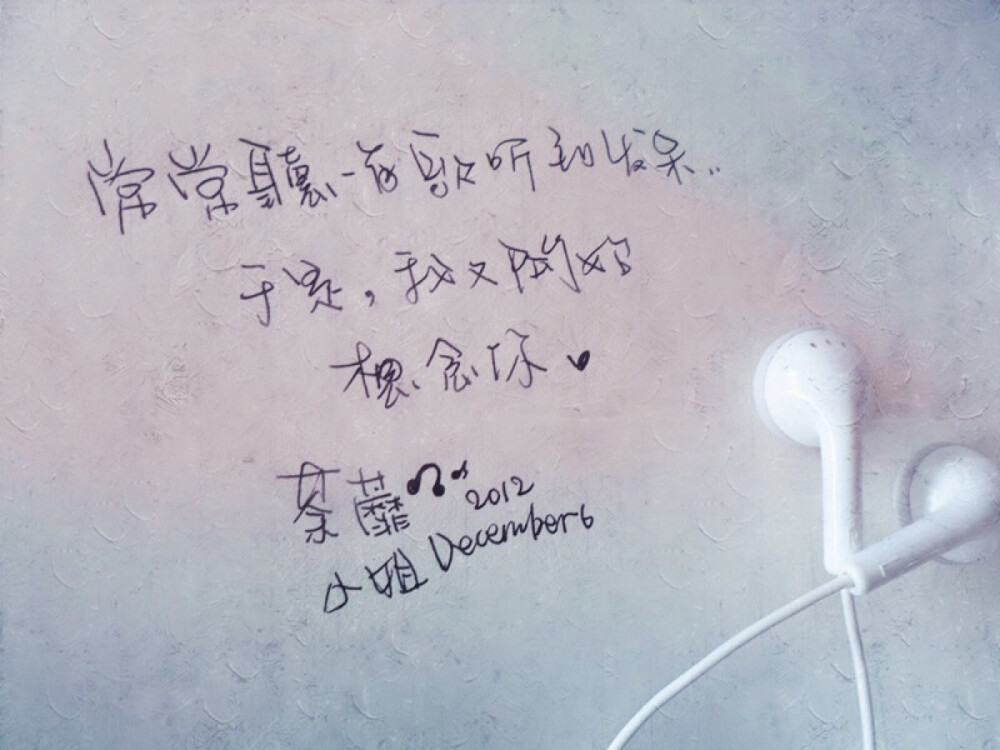 常常聽一首歌听到发呆..
于是,我又開始
想念你
荼蘼 2012
小姐 December 6